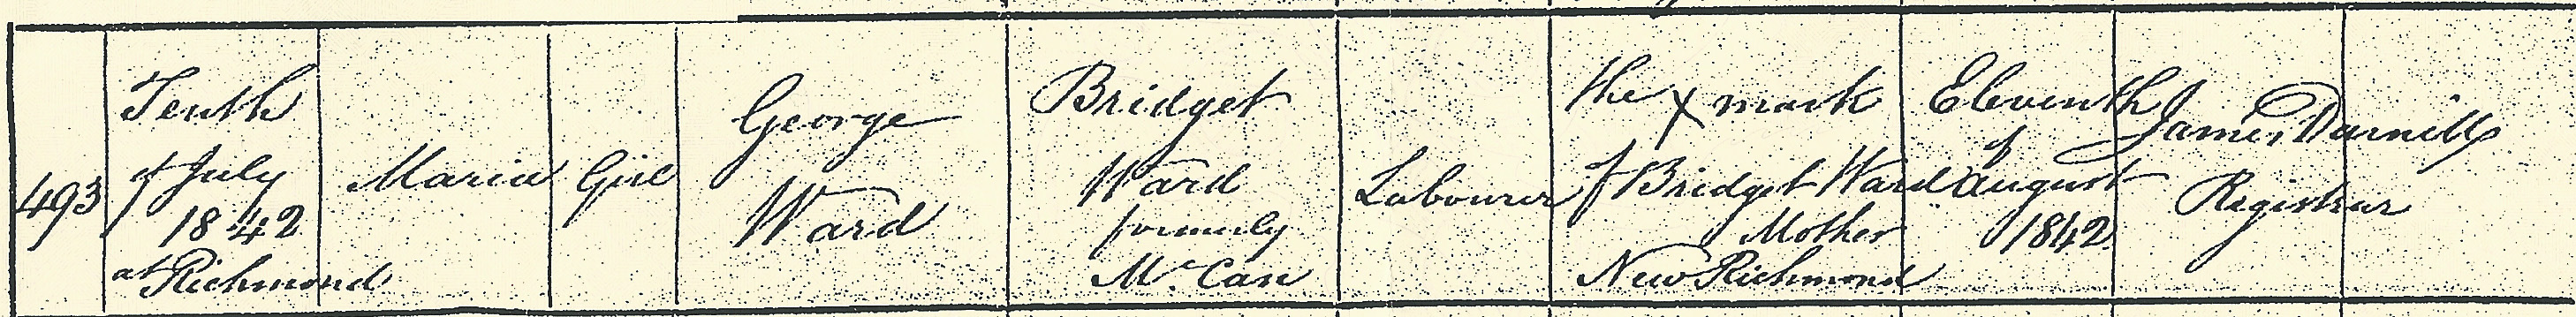 493
Tenth
of July
1842
at Richmond
Maria
Girl
George
Ward
Bridget
Ward
formerly
McCan
Labourer
the X mark
of Bridget Ward
Mother
New Richmond
Eleventh
of
August
1842
James
Registrar